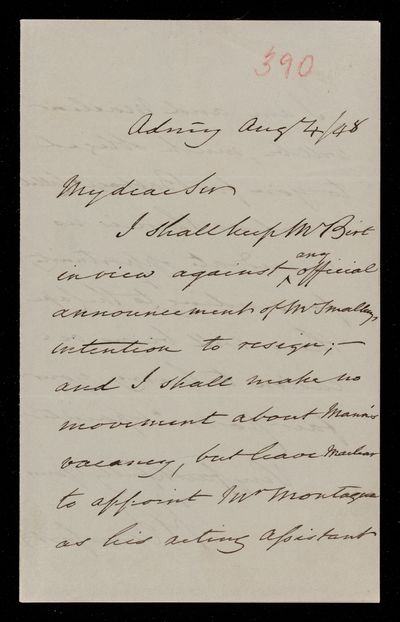 390
Admty Aug 4/48
My dear Sir
I shall keep Mr Birt
in view against any official
announcement of Mr Smalley's
intention to resign; —
and I shall make no
movement about Mann's
vacancy, but leave Maclear
to appoint Mr Montague
as his acting Assistant